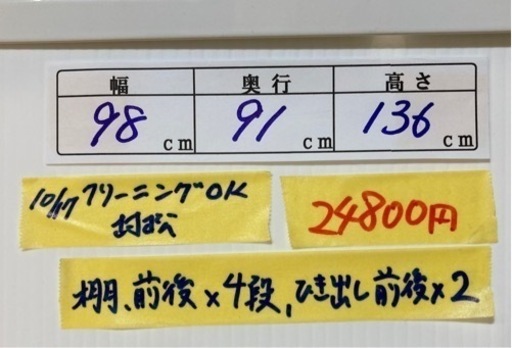 幅 奥行 高さ
98 cm 91 cm 136 cm
10/17 クリーニングOK
24800円
棚、前後×4段、ひき出し前後×2